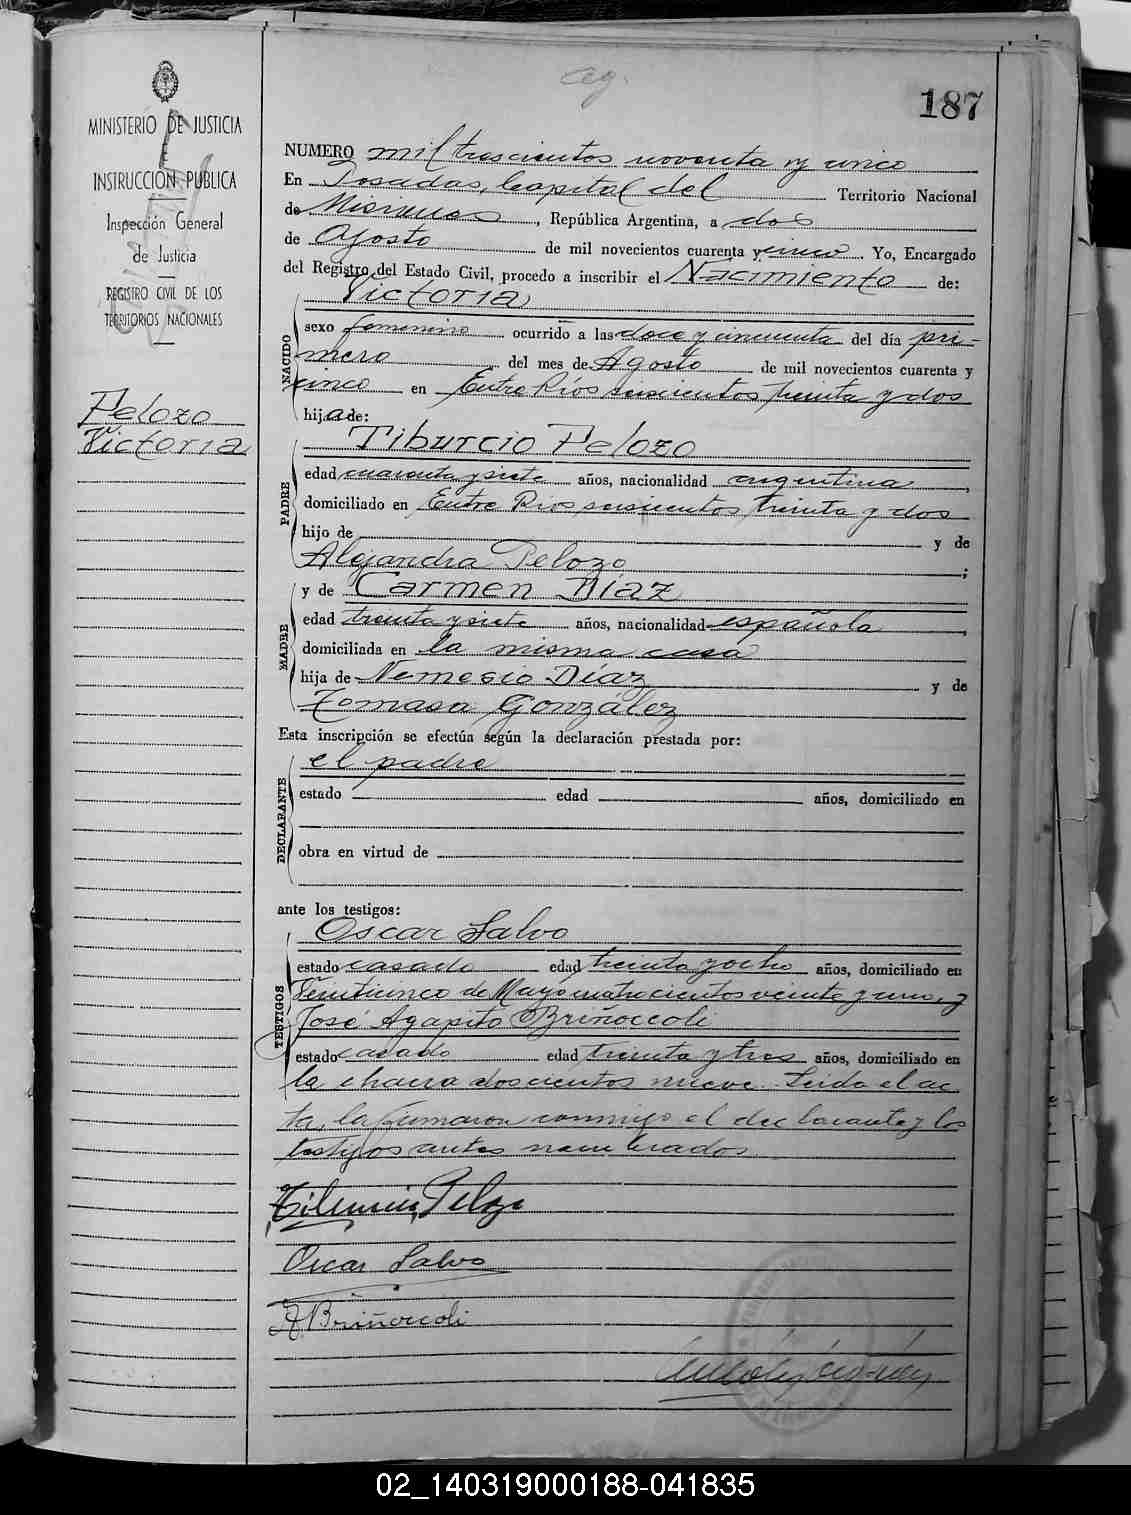 ag.
187
MINISTERIO DE JUSTICIA
INSTRUCCIÓN PUBLICA
Inspección General
de Justicia
REGISTRO CIVIL DE LOS
TERRITORIOS NACIONALES
Pelozo
Victoria
NUMERO mil trescientos noventa y cinco
En Posadas, Capital del Territorio Nacional
de Misiones, República Argentina, a dos
de Agosto de mil novecientos cuarenta y cinco. Yo, Encargado
del Registro del Estado Civil, procedo a inscribir el Nacimiento de:
NACIDO
Victoria
sexo femenino ocurrido a las doce y cincuenta del día pri-
mero del mes de Agosto de mil novecientos cuarenta y
cinco en Entre Ríos seiscientos treinta y dos
hija de:
PADRE
Tiburcio Pelozo
edad cuarenta y siete años, nacionalidad argentina,
domiciliado en Entre Ríos seiscientos treinta y dos
hijo de y de
Alejandra Pelozo;
y de Carmen Díaz
MADRE
edad treinta y siete años, nacionalidad española,
domiciliada en la misma casa
hija de Nemesio Díaz y de
Tomasa González
Esta inscripción se efectúa según la declaración prestada por:
DECLARANTE
el padre
estado edad años, domiciliado en
obra en virtud de
ante los testigos:
TESTIGOS
Oscar Salvo
estado casado edad treinta y ocho años, domiciliado en
Veinticinco de Mayo cuatrocientos veinte y uno, y
José Agapito Briñoccoli
estado casado edad treinta y tres años, domiciliado en
la chacra doscientos nueve. Leída el ac-
ta, la firmaron conmigo el declarante y los
testigos antes nombrados
Tiburcio Pelozo
Oscar Salvo
A. Briñoccoli
02_140319000188-041835